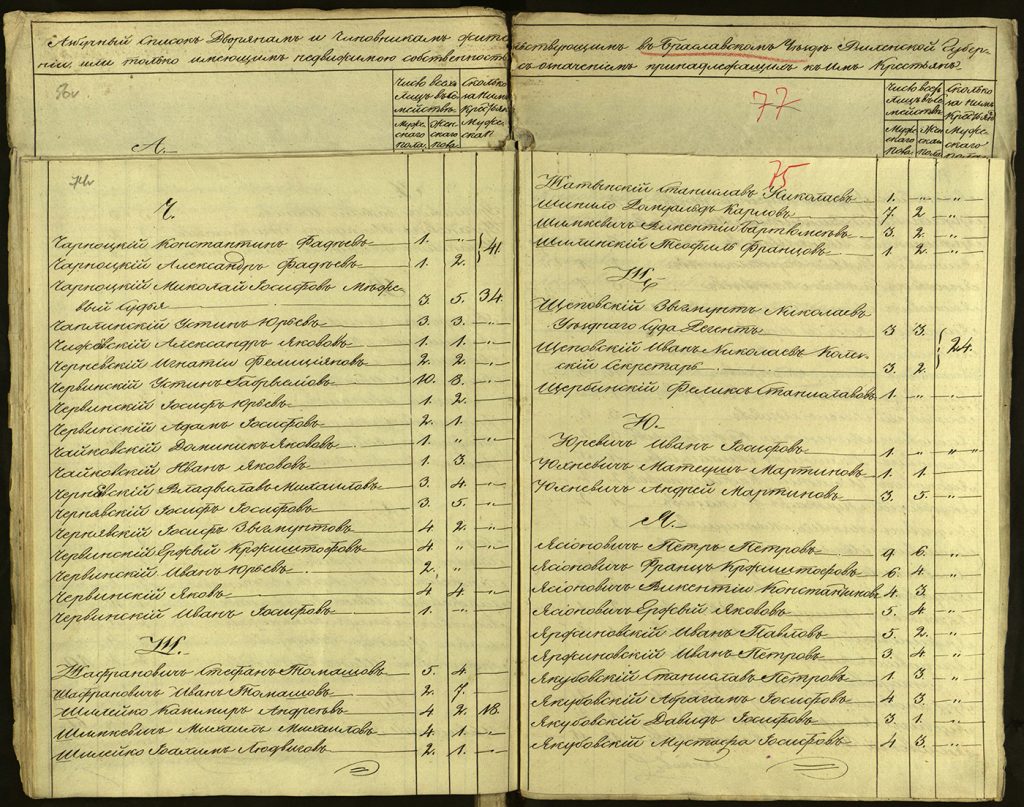 Азбучный Списокъ Дворянамъ и Чиновникамъ жительствующимъ въ Браславскомъ Уѣздѣ Виленской Губер-
ніи или только имеющимъ недвижимою собственность съ означеніемъ принадлежащихъ къ нимъ Крестьянъ.
Число всехъ лицъ въ семействѣ
Мужескаго пола
Женскаго пола
Сколько за ними Крестьянъ Мужескаго
А.
Ч.
Чарноцкій Константинъ Фадѣевъ 1. „ 41.
Чарноцкій Александръ Фадѣевъ 1. 2.
Чарноцкій Николай Іосифовъ Межевый Судья 3. 5. 34.
Чаплинскій Устинъ Юрьевъ 3. 3. „
Чижевскій Александръ Якововъ 1. 1. „
Черневскій Игнатій Фелиціяновъ 2. 2. „
Червинскій Устинъ Гаврыловъ 10. 8. „
Червинскій Іосифъ Юрьевъ 1. 2.
Червинскій Адамъ Іосифовъ 2. 1.
Чайковскій Доминикъ Якововъ 1. „ „
Чайковскій Иванъ Якововъ 1. 3. „
Чернявскій Владыславъ Михаиловъ 3. 4. „
Чернявскій Іосифъ Іосифовъ 3. 5. „
Чернявскій Іосифъ Зыгмунтовъ 4. 2. „
Червинскій Ержый Кржиштофовъ 4. „ „
Червинскій Иванъ Юрьевъ 2. „
Червинскій Яковъ 4. 4. „
Червинскій Иванъ Іосифовъ 1. „
Ш.
Шафрановичъ Стефанъ Томашовъ 5. 4.
Шафрановичъ Иванъ Томашовъ 2. 7.
Шилейко Казимиръ Андреевъ 4. 2. 18.
Шимкевичъ Михаилъ Михаиловъ 4. 1. „
Шилейко Іоахимъ Людвиговъ 2. 1. „
77
Число всехъ лицъ въ семействѣ
Мужескаго пола
Женскаго пола
Сколько за нимъ Крестьянъ Мужескаго пола
75
Станиславъ Николаевъ 1. „ „
Шипило Ромуальдъ Карловъ 7. 2 „
Шимкевичъ Викентій Бартломѣевъ 3. 2. „
Шилинскій Теофиль Францовъ 1. 2. „
Щ.
Щеповскій Зыгмунтъ Николаевъ
Уѣзднаго Суда Регентъ 3 3. 24.
Щеповскій Иванъ Николаевъ Колежскій Секретарь 3. 2.
Щербинскій Феликсъ Станиславовъ 1 „ „
Ю.
Юревичъ Иванъ Іосифовъ 1 „ „
Юхневичъ Матеушъ Мартиновъ 1. 1. „
Юхневичъ Андрей Мартиновъ 3. 5. „
Я.
Ясіоновичъ Петръ Петровъ 9 6. „
Ясіоновичъ Францъ Кржиштофовъ 6. 4. „
Ясіоновичъ Викентій Константиновъ 4. 3. „
Ясіоновичъ Ержый Якововъ 5. 4 „
Яржиновскій Иванъ Павловъ 5. 2. „
Яржиновскій Иванъ Петровъ 3. 4 „
Якубовскій Станиславъ Петровъ 1. 3 „
Якубовскій Абрагамъ Іосифовъ 4 3. „
Якубовскій Давидъ Іосифовъ 3. 1. „
Якубовскій Мустафа Іосифовъ 4 3. „